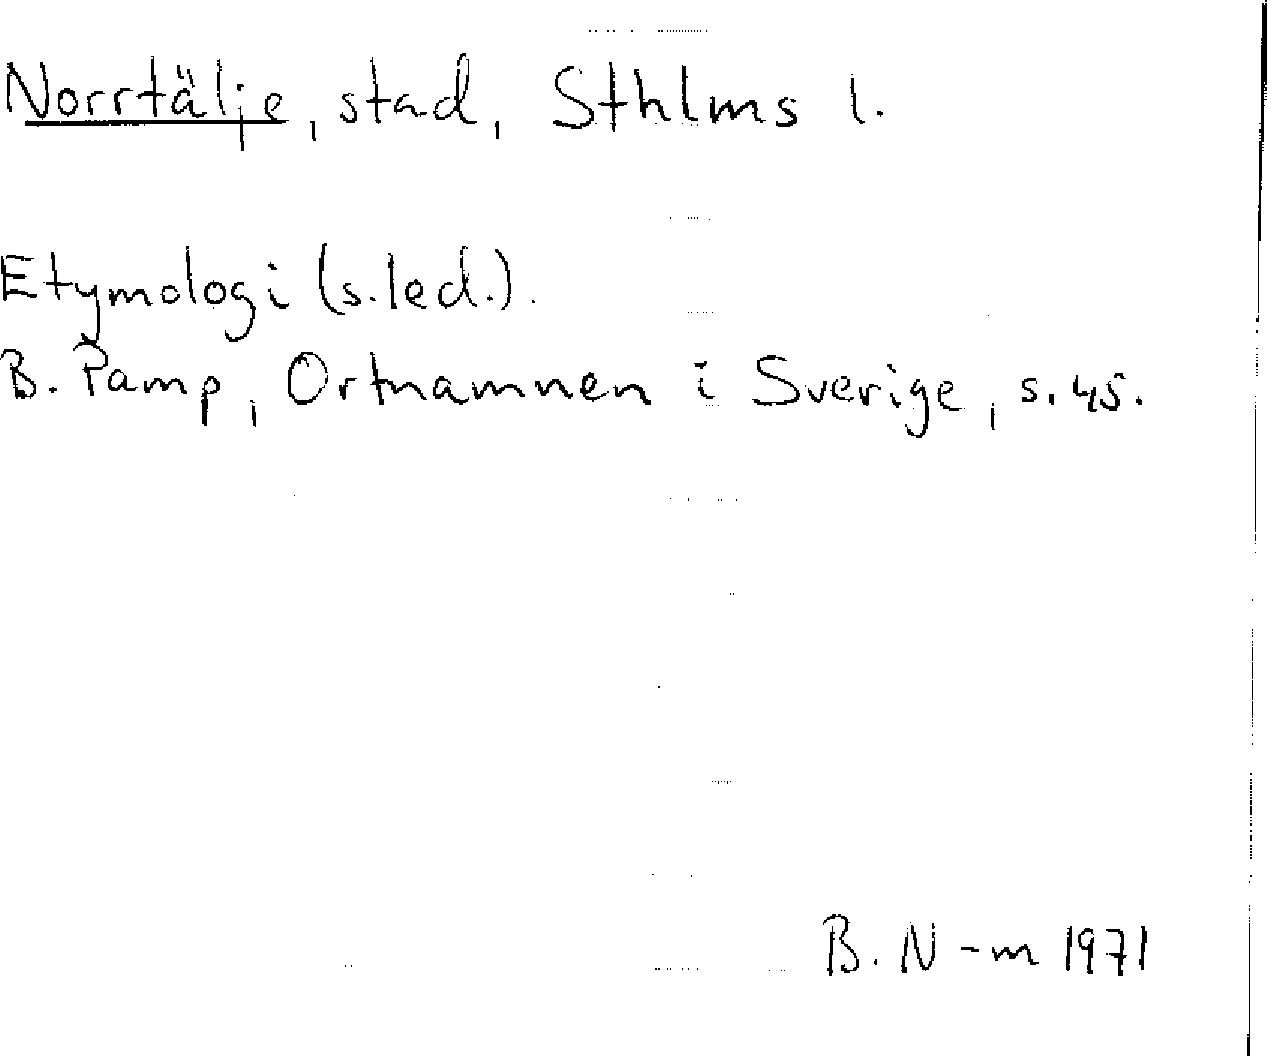 Norrtälje, stad, Sthlms l.
Etymologi (s.led.).
B. Pamp, Ortnamnen i Sverige, s. 45.
B. N-m 1971